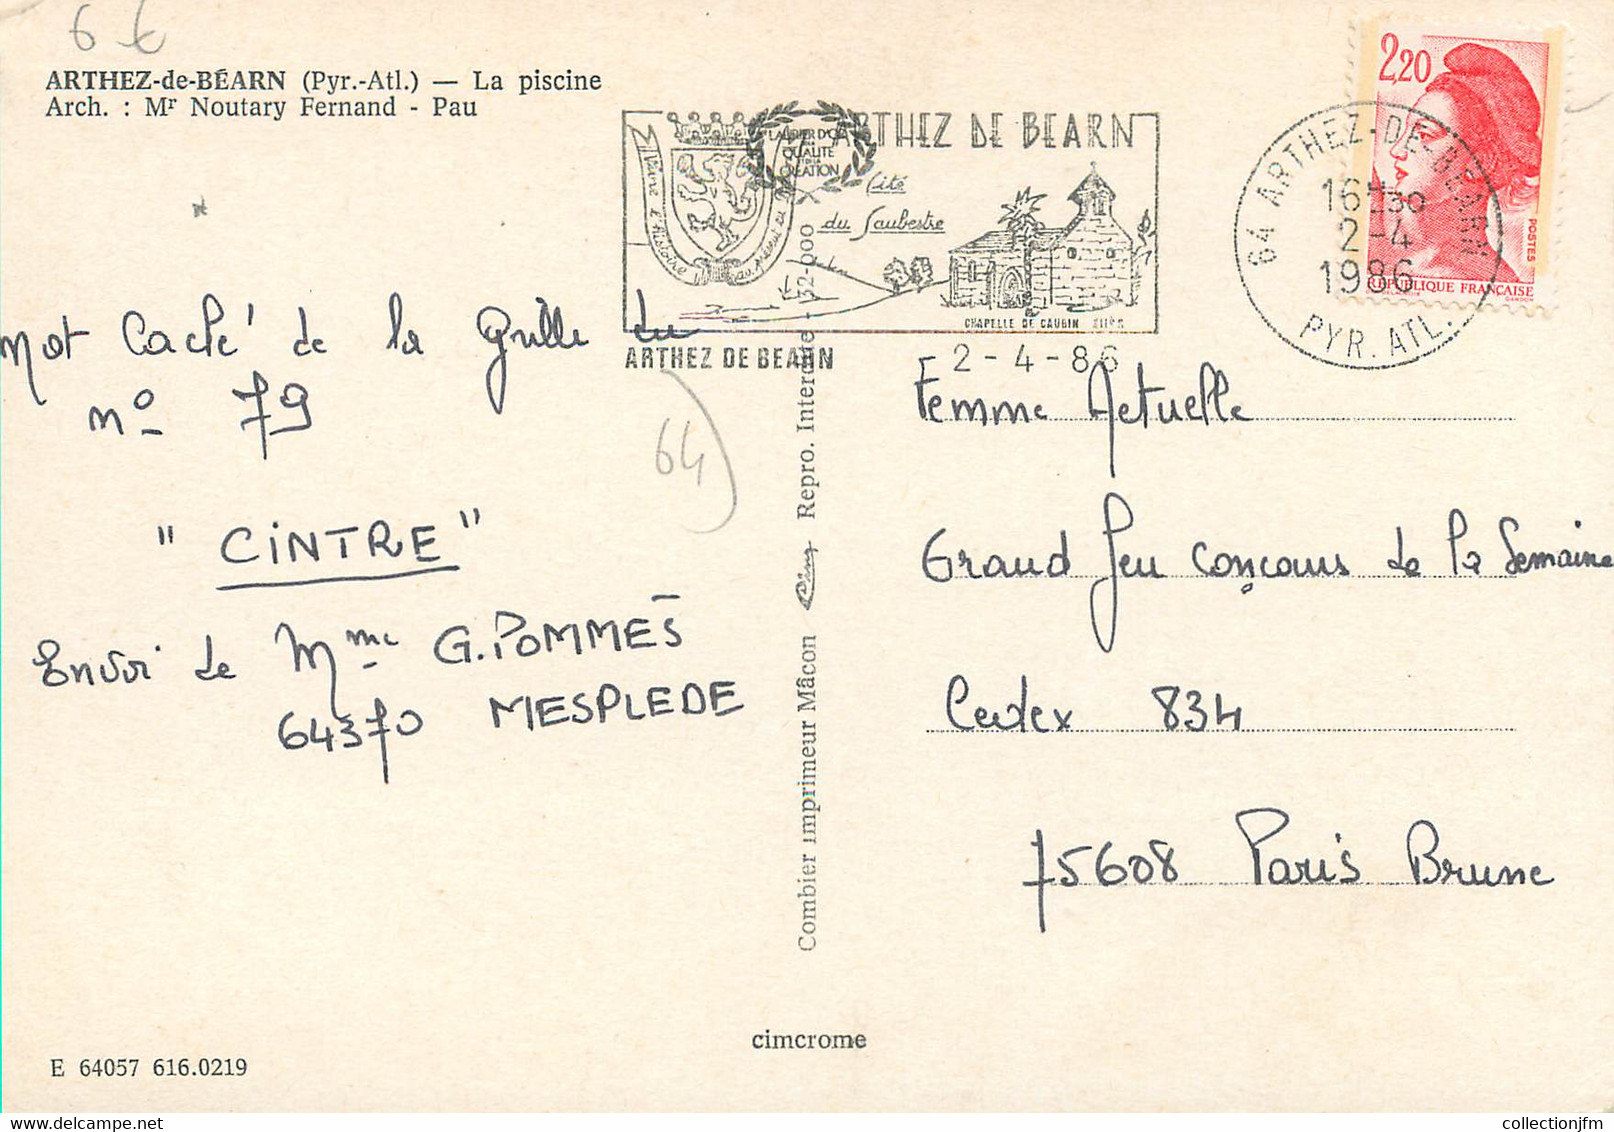 6 €
ARTHEZ-de-BÉARN (Pyr.-Atl.) — La piscine
Arch. : Mr Noutary Fernand - Pau
LAURIER D'OR
QUALITE
CREATION
ARTHEZ DE BEARN
cité
du Saubestre
CHAPELLE DE CAUBIN XIIe S
ARTHEZ DE BEARN
2 - 4 - 86
2,20
POSTES
REPUBLIQUE FRANCAISE
64 ARTHEZ-DE-BEARN
16H30
2 -4
1986
PYR. ATL.
Mot Caché de la grille du
n° 79
" CINTRE "
Envoi de Mme G. POMMÈS
64370 MESPLEDE
64
Combier imprimeur Mâcon Cim Repro. Interdite - 32-000
Femme Actuelle
Grand Jeu concours de la Semaine
Cedex 834
75608 Paris Brune
cimcrome
E 64057 616.0219
collectionjfm